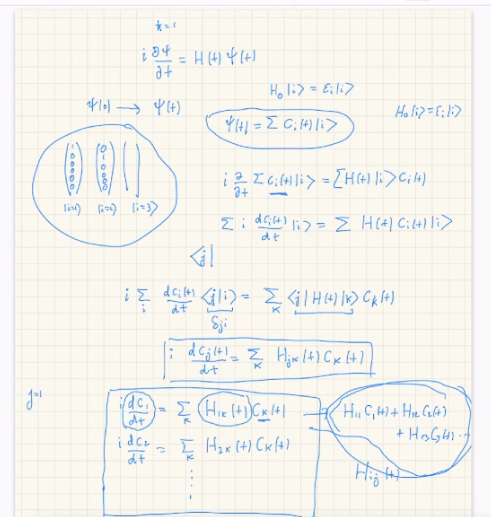 ħ = 1
i ∂Ψ/∂t = H(t) Ψ(t)
H₀|i> = ε_i|i>
Ψ(0) → Ψ(t)
H₀|i> = ε_i|i>
Ψ(t) = Σ C_i(t)|i>
|i=1> |i=2> |i=3>
i ∂/∂t Σ C_i(t)|i> = Σ H(t)|i> C_i(t)
Σ i dC_i(t)/dt |i> = Σ H(t) C_i(t)|i>
<j|
i Σ_i dC_i(t)/dt <j|i> = Σ_K <j|H(t)|K> C_K(t)
δ_ji
i dC_j(t)/dt = Σ_K H_jK(t) C_K(t)
j=1
i dC₁/dt = Σ_K H_1K(t) C_K(t)
H₁₁ C₁(t) + H₁₂ C₂(t)
+ H₁₃ C₃(t) ...
i dC₂/dt = Σ_K H_2K(t) C_K(t)
H_ij(t)